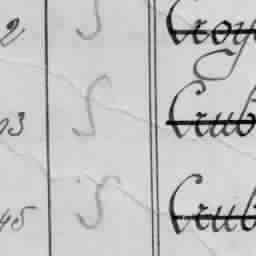 2 S Croy
03 S Crub
45 S Crub